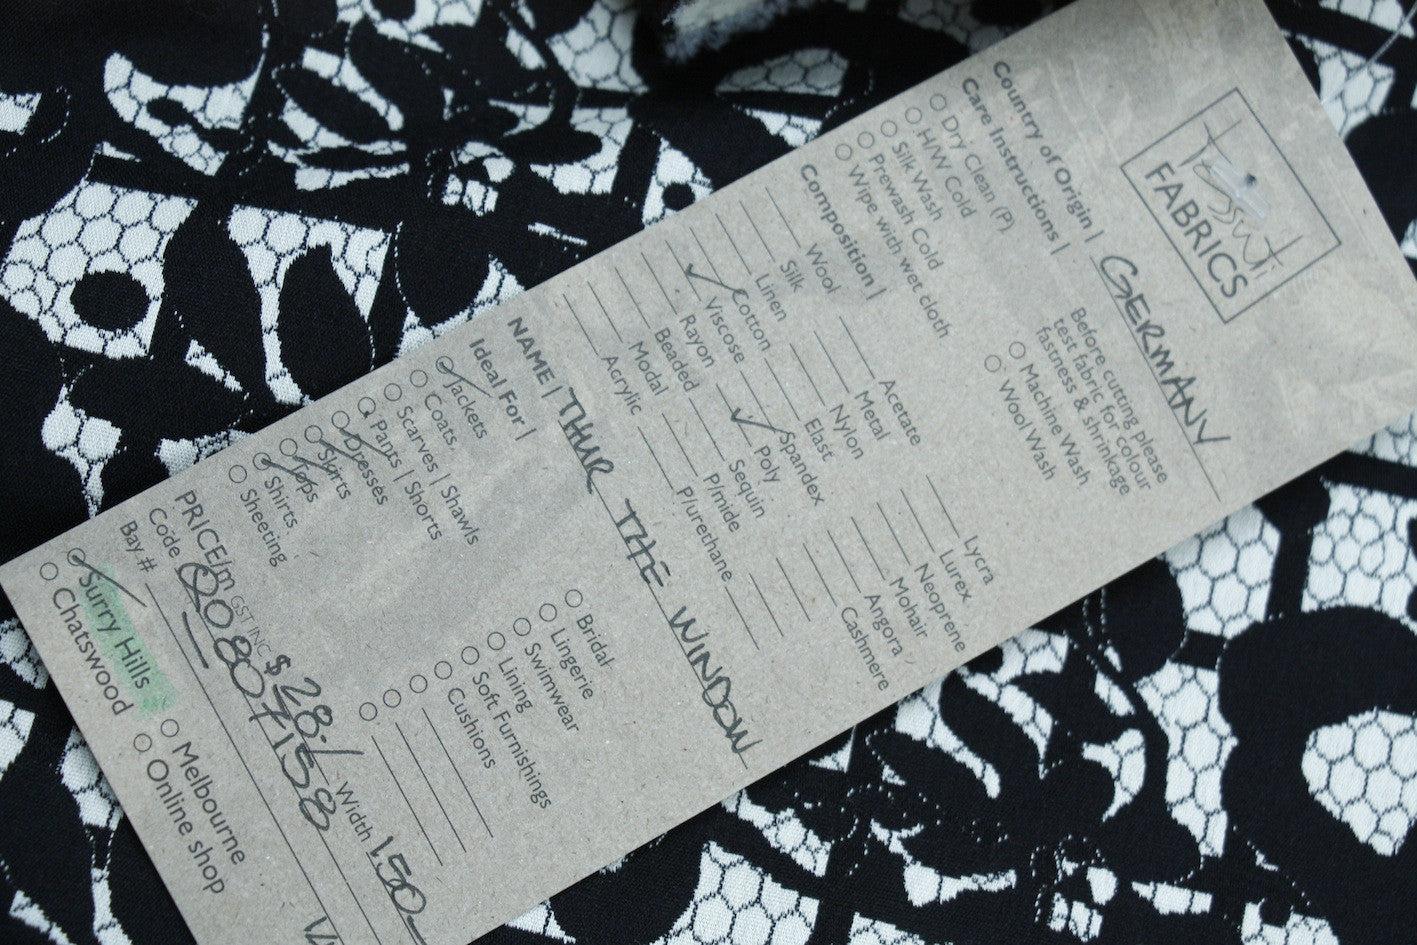 Tessuti
FABRICS
Country of Origin | GERMANY
Care Instructions |
Dry Clean (P)
H/W Cold
Silk Wash
Prewash Cold
Wipe with wet cloth
Before cutting please
test fabric for colour
fastness & shrinkage
Machine Wash
Wool Wash
Composition |
Wool
Silk
Linen
Cotton
Viscose
Rayon
Beaded
Modal
Acrylic
Acetate
Metal
Nylon
Elast
Spandex
Poly
Sequin
P/mide
P/urethane
Lycra
Lurex
Neoprene
Mohair
Angora
Cashmere
NAME | THUR THE WINDOW
Ideal For |
Jackets
Coats
Scarves | Shawls
Pants | Shorts
Dresses
Skirts
Tops
Shirts
Sheeting
Bridal
Lingerie
Swimwear
Lining
Soft Furnishings
Cushions
PRICE/m GST INC $28./ Width 1.50
Code 00807158
Bay #
Surry Hills
Chatswood
Melbourne
Online shop